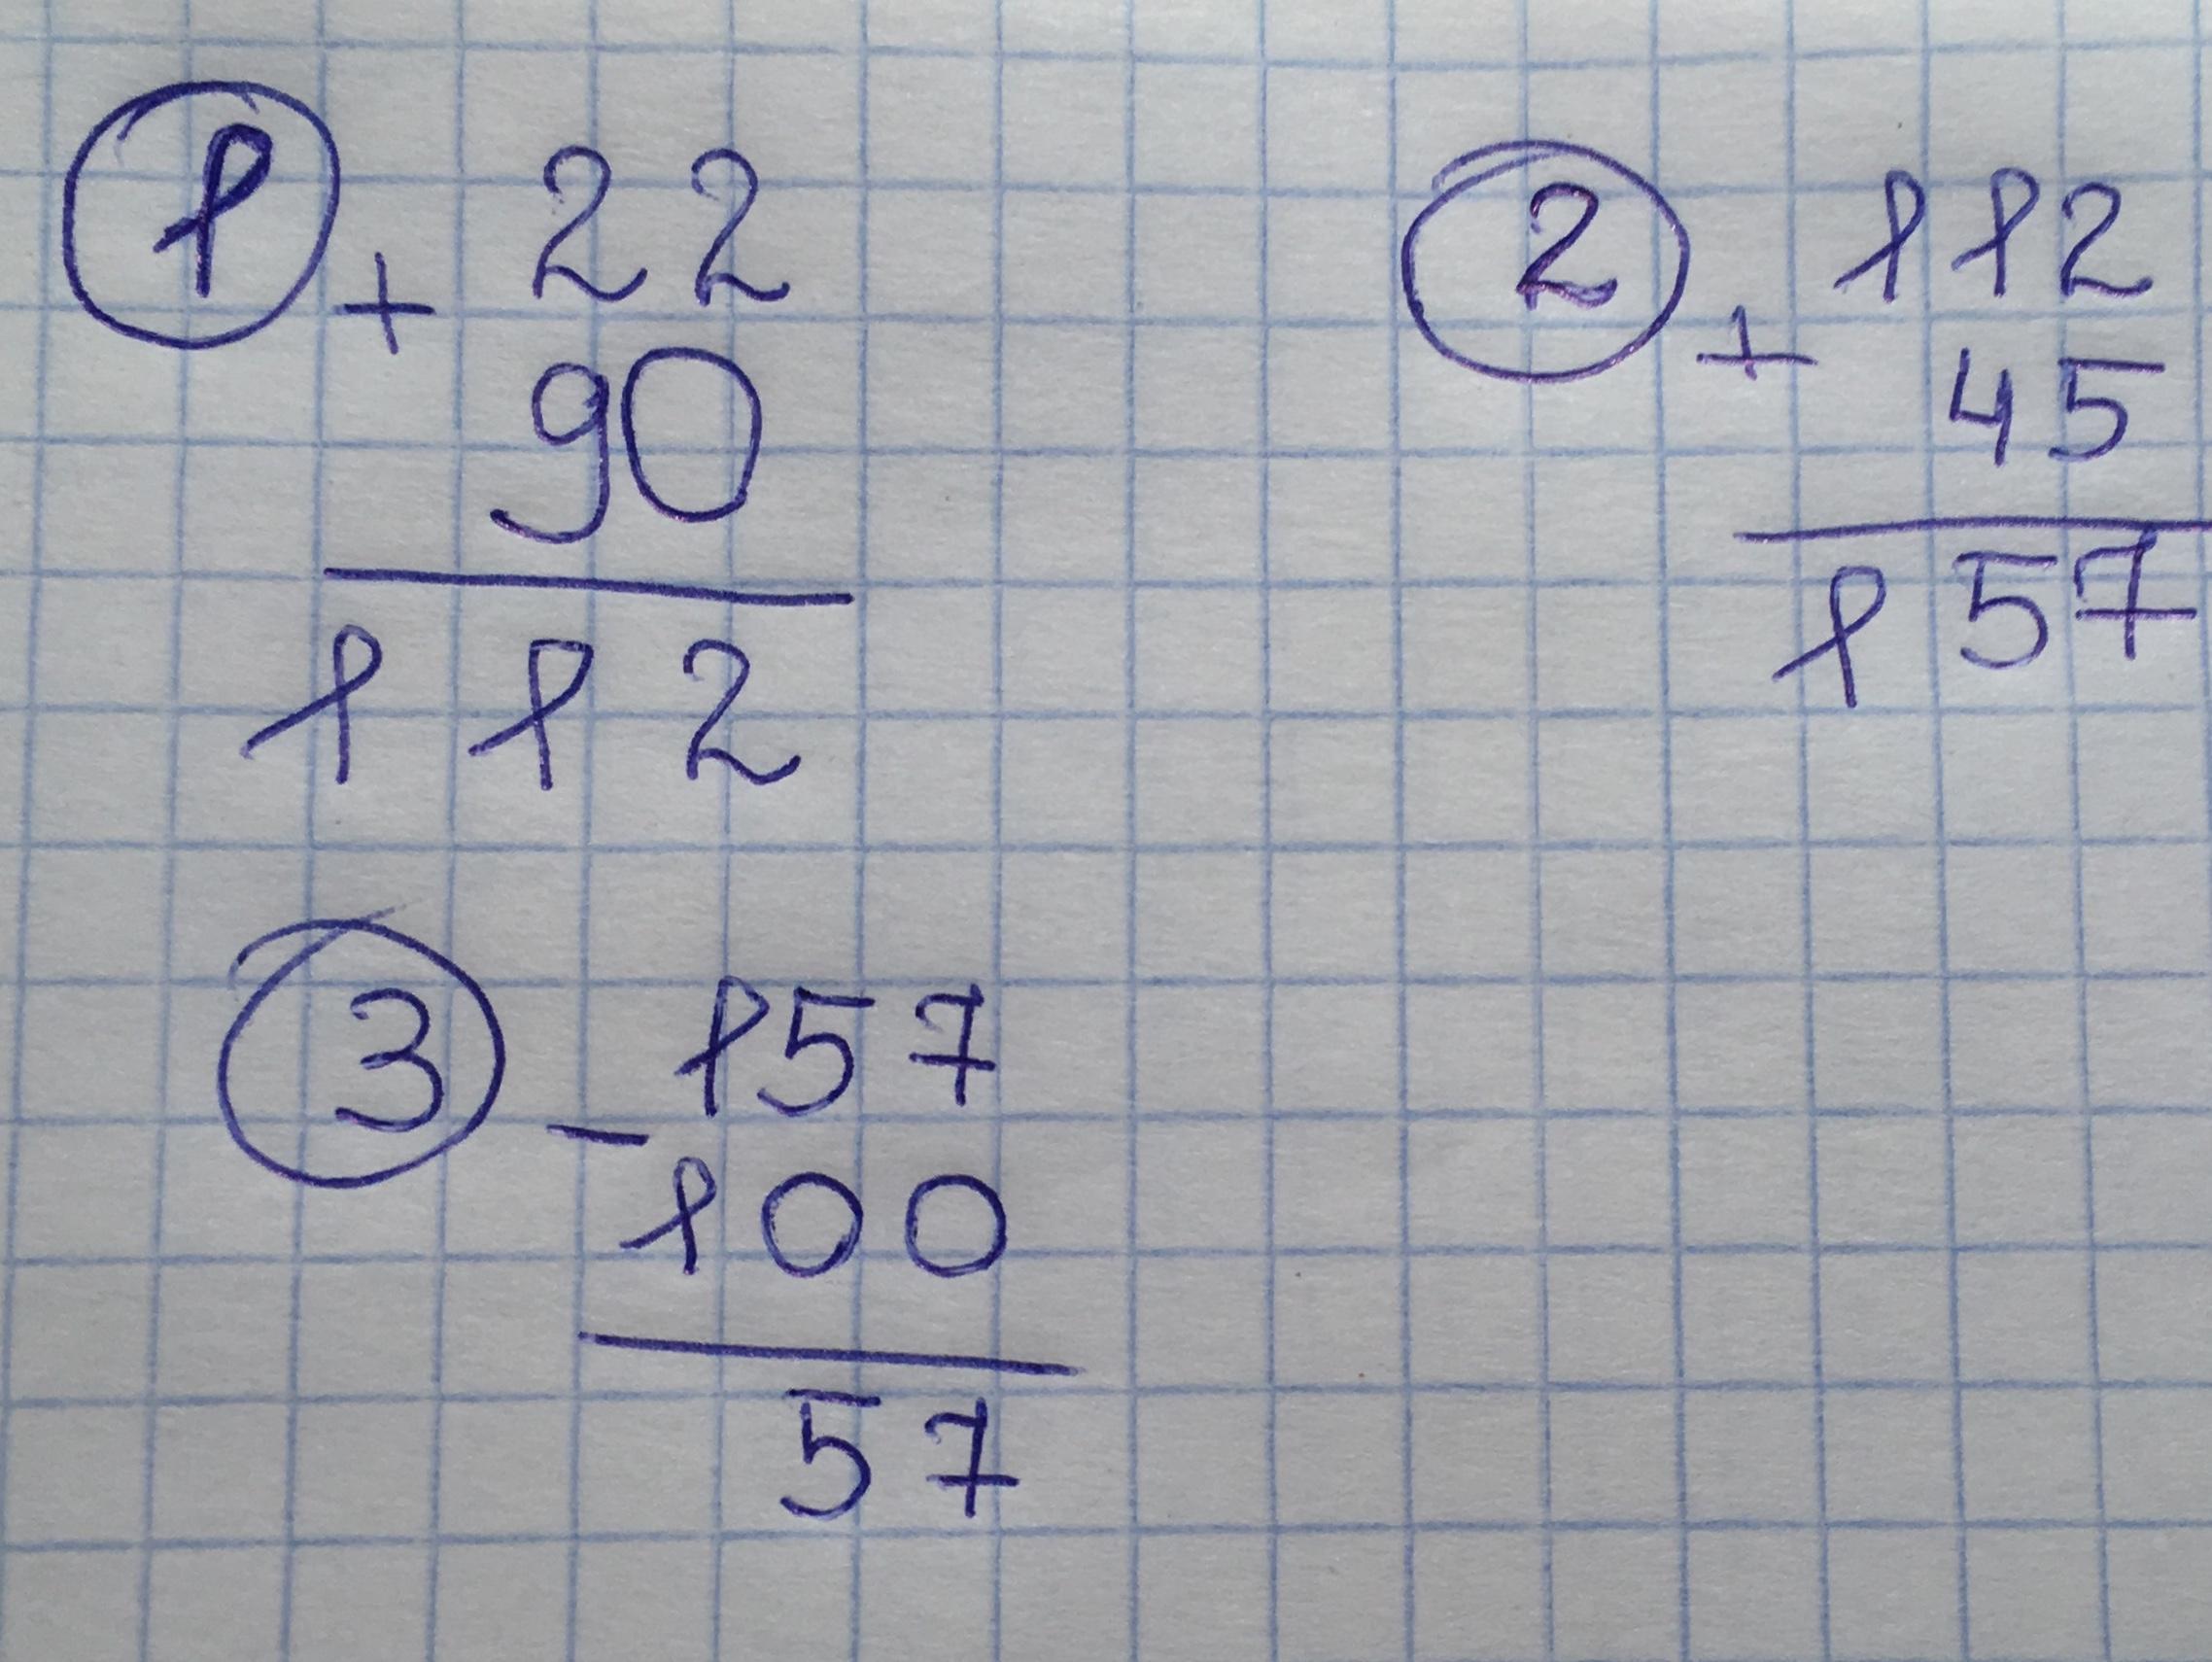 1 + 22
90
112
2 + 112
45
157
3 - 157
100
57